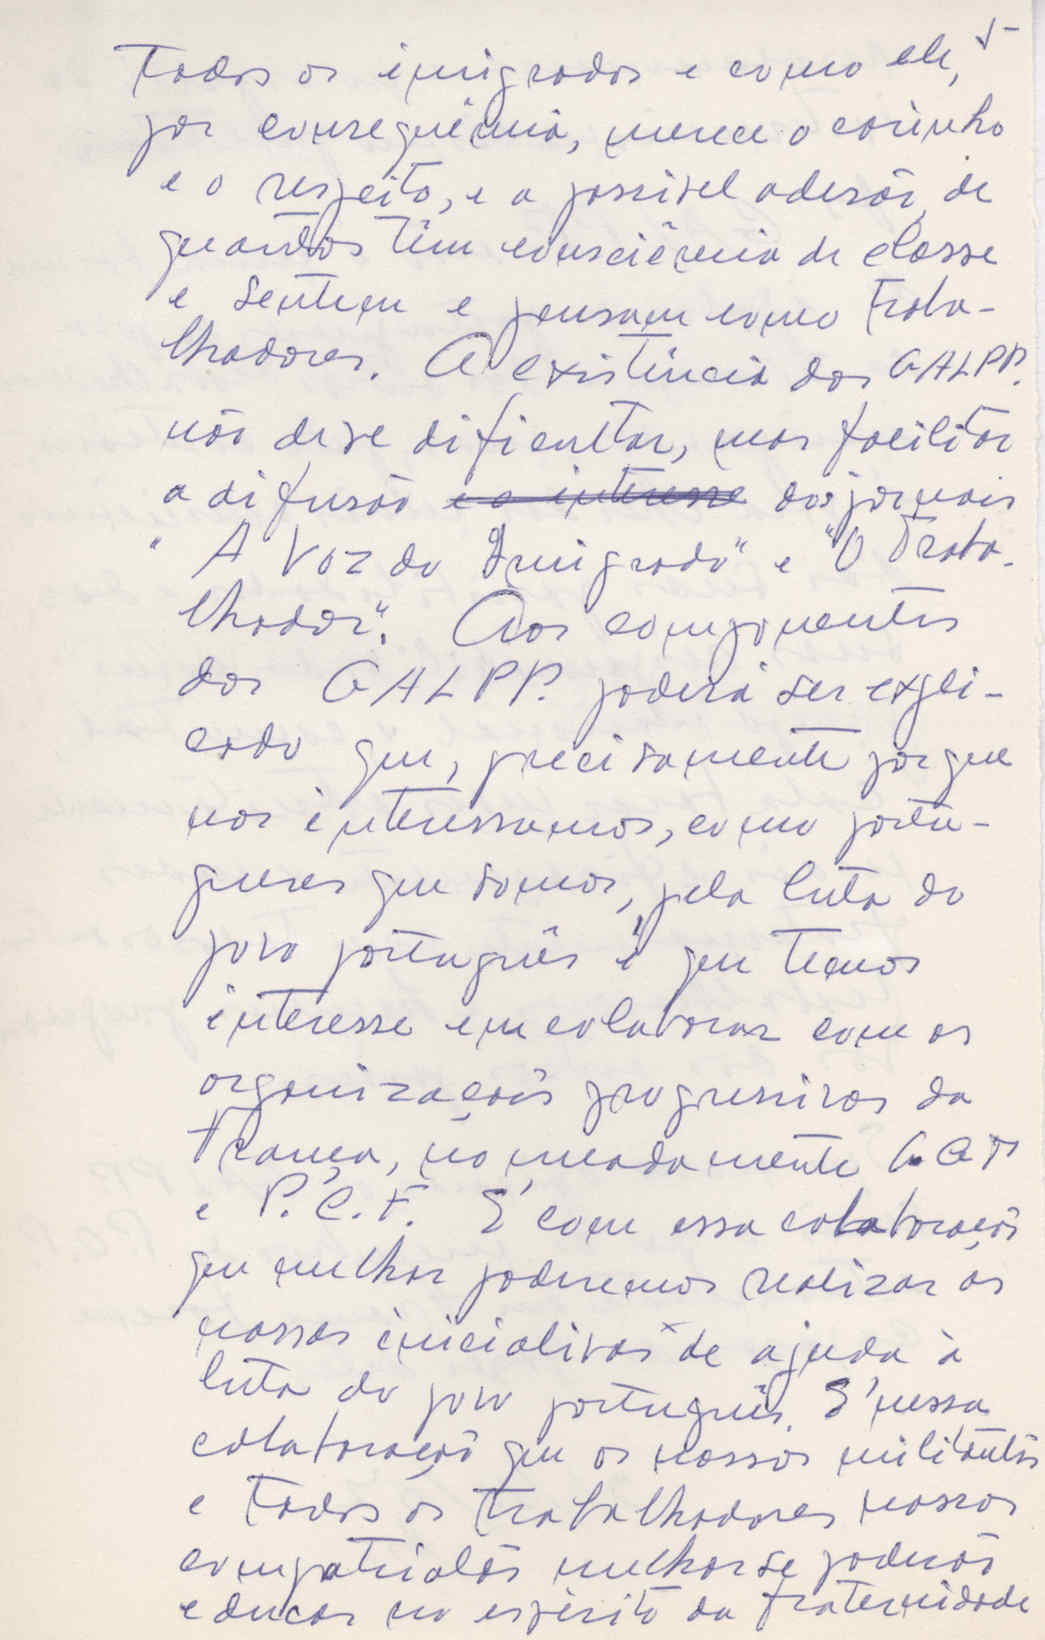 5-
todos os imigrados e como ele,
por consequência, merece o carinho
e o respeito, e a possivel adesão, de
quantos têm consciência de classe
e sentem e pensam como traba-
lhadores. A existência dos GALPP.
não deve dificultar, mas facilitar
a difusão e o interesse dos jornais
"A Voz do Imigrado" e "O Traba-
lhador". Aos componentes
dos GALPP. poderá ser expli-
cado que, precisamente porque
nos interessamos, como portu-
gueses que somos, pela luta do
povo português é que temos
interesse em colaborar com as
organizações progressivas da
França, nomeadamente C.G.T
e P.C.F. É com essa colaboração
que melhor poderemos realizar as
nossas iniciativas de ajuda à
luta do povo português. É nessa
colaboração que os nossos militantes
e todos os trabalhadores nossos
compatriotas melhor se poderão
educar no espírito da fraternidade